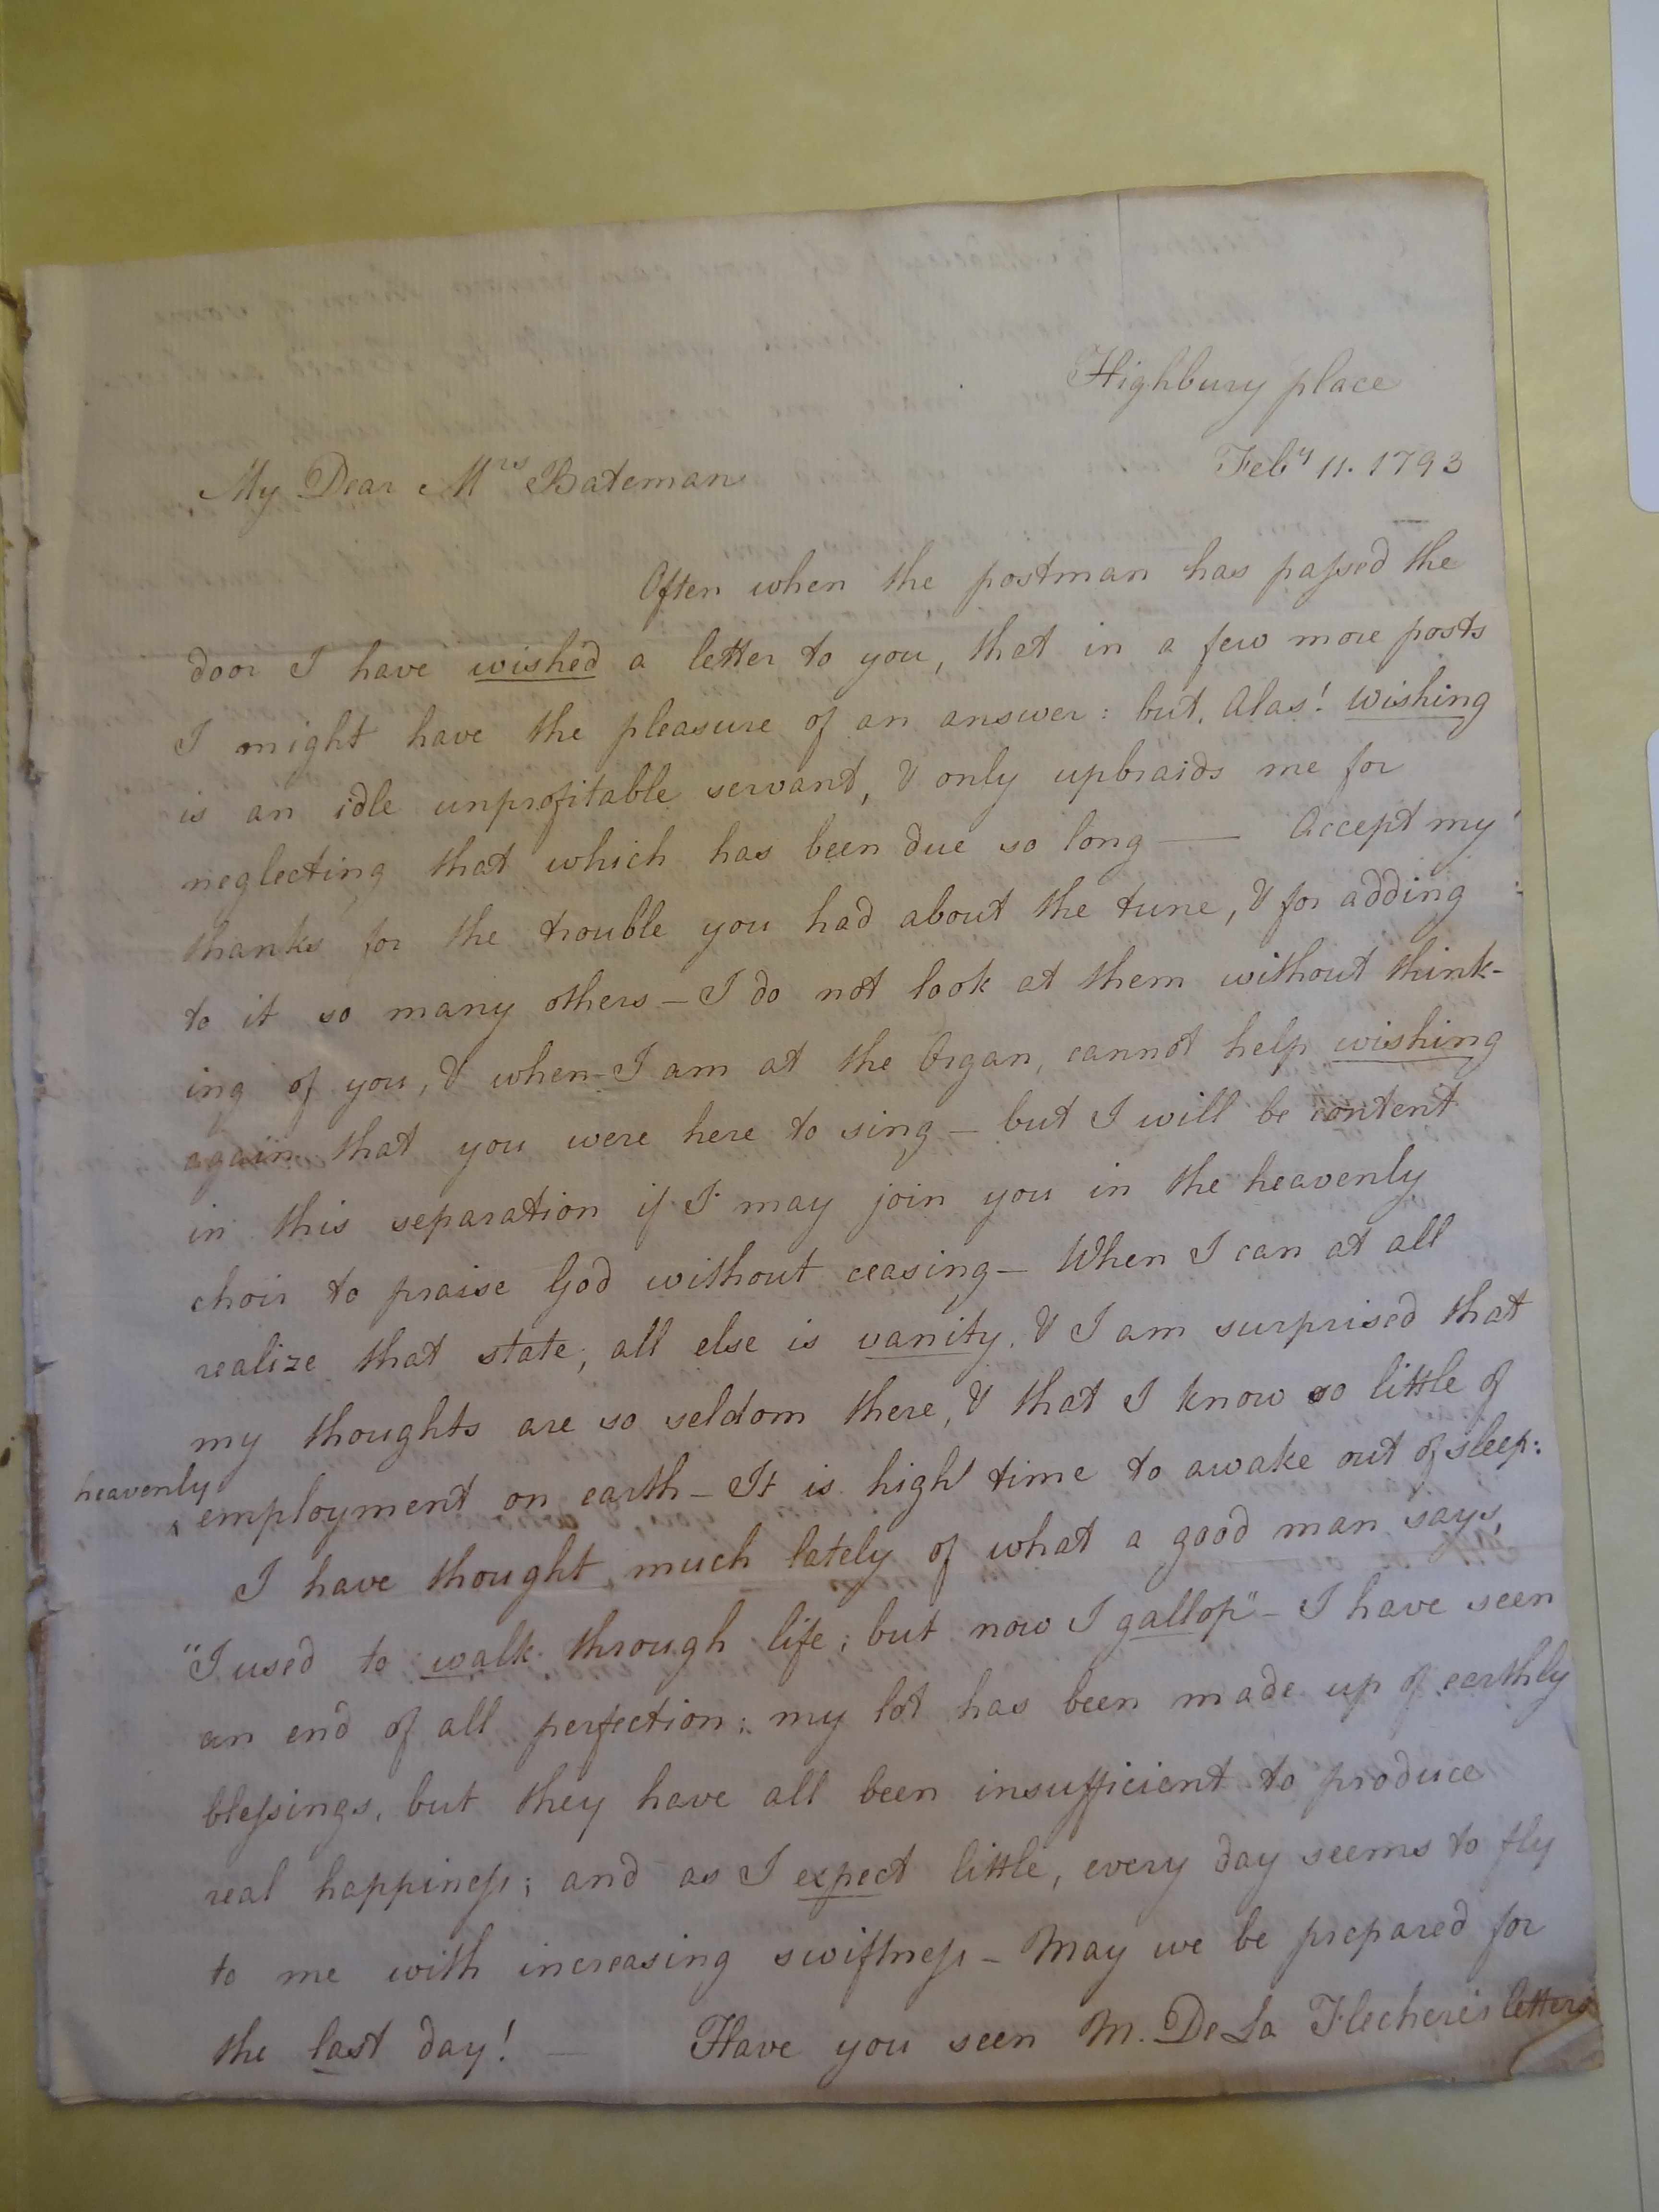 Highbury place
Feby 11. 1793
My Dear Mrs Bateman
Often when the postman has passed the
door I have wished a letter to you, that in a few more posts
I might have the pleasure of an answer: but, Alas! wishing
is an idle unprofitable servant, & only upbraids me for
neglecting that which has been due so long — Accept my
thanks for the trouble you had about the tune, & for adding
to it so many others – I do not look at them without think-
ing of you, & when I am at the Organ, cannot help wishing
again that you were here to sing – but I will be content
in this separation if I may join you in the heavenly
choir to praise God without ceasing – When I can at all
realize that state, all else is vanity. & I am surprised that
my thoughts are so seldom there, & that I know so little of
heavenly
employment on earth – It is high time to awake out of sleep:
I have thought much lately of what a good man says,
"I used to walk through life; but now I gallop" – I have seen
an end of all perfection; my lot has been made up of earthly
blessings, but they have all been insufficient to produce
real happiness; and as I expect little, every day seems to fly
to me with increasing swiftness – May we be prepared for
the last day! — Have you seen M. De La Flechere's letters